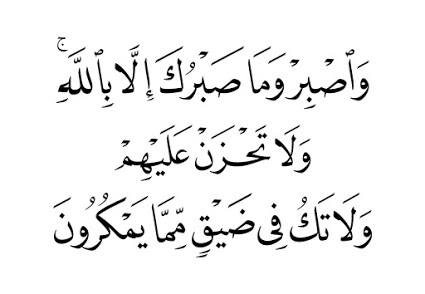 وَٱصْبِرْ وَمَا صَبْرُكَ إِلَّا بِٱللَّهِ ۚ
وَلَا تَحْزَنْ عَلَيْهِمْ
وَلَا تَكُ فِى ضَيْقٍ مِّمَّا يَمْكُرُونَ